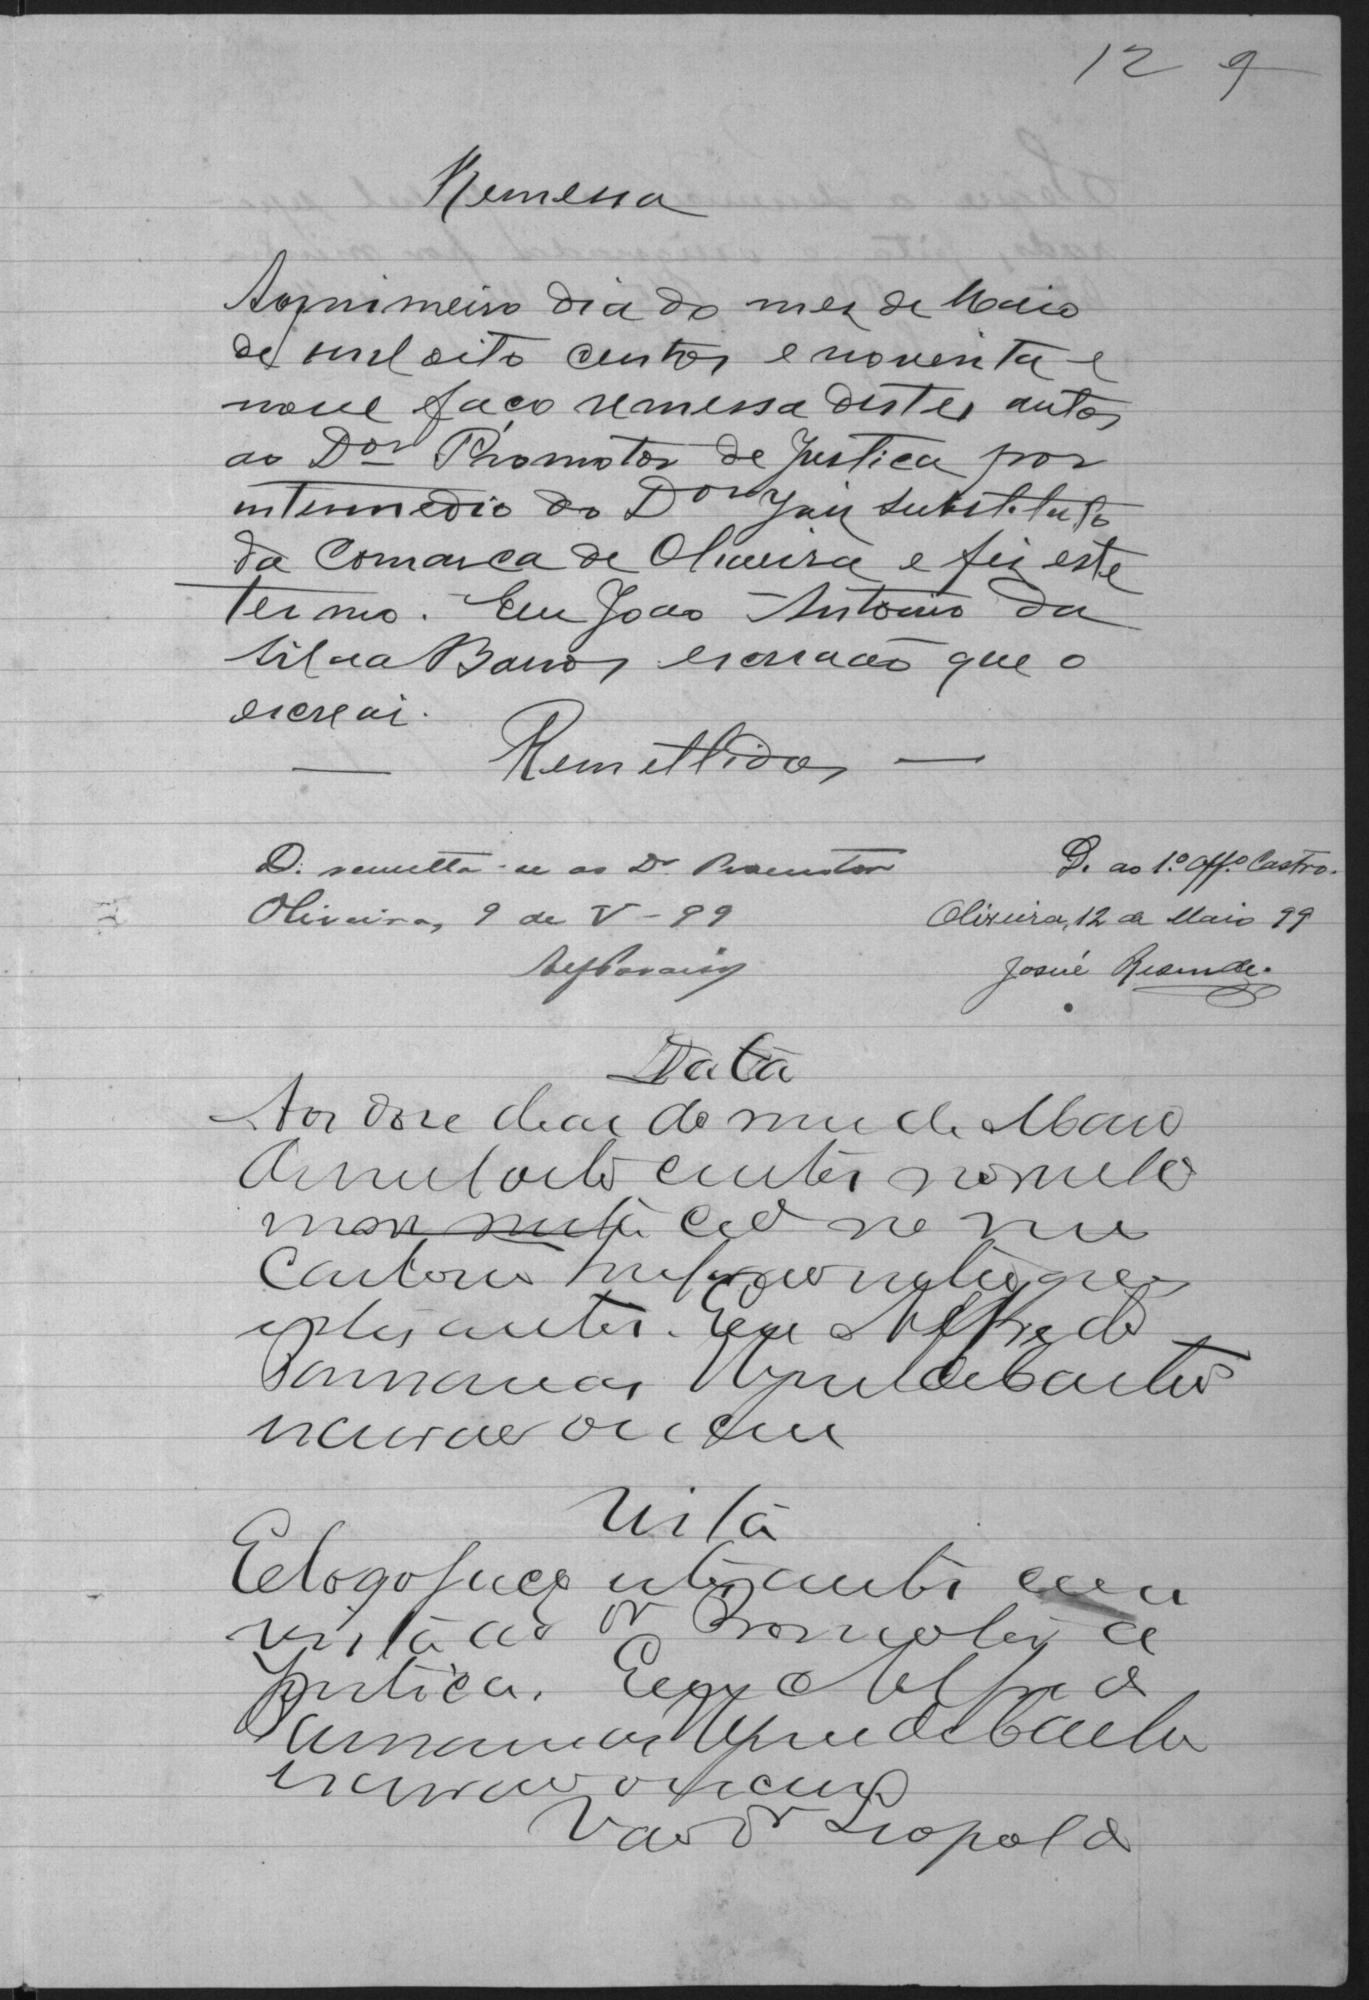 12 9
Remessa
Ao primeiro dia do mez de Maio
de mil oito centos e noventa e
nove faço remessa destes autos
ao Dor Promotor de Justiça por
intermedio do Dor Juiz substituto
da Comarca de Oliveira e fiz este
termo. Eu João Antonio da
Silva Barros escrivão que o
escrevi.
— Remettidos —
D. remetta-se ao Dr Promotor
Oliveira, 9 de V - 99
D. ao 1.º Offº Castro.
Oliveira, 12 de Maio 99
Josué Resende.
Data
Aos doze dias do mez de Maio
de mil oito centos noventa
nove nesta cid
Cartorio
estes autos. Eu Alfredo
de Castro
escrivão o escrevi
Vista
E logo faço estes autos com
vista ao Dr Promotor de
Justiça. Eu Alfredo
de Castro
escrivão o escrevi
V ao Dr Leopoldo